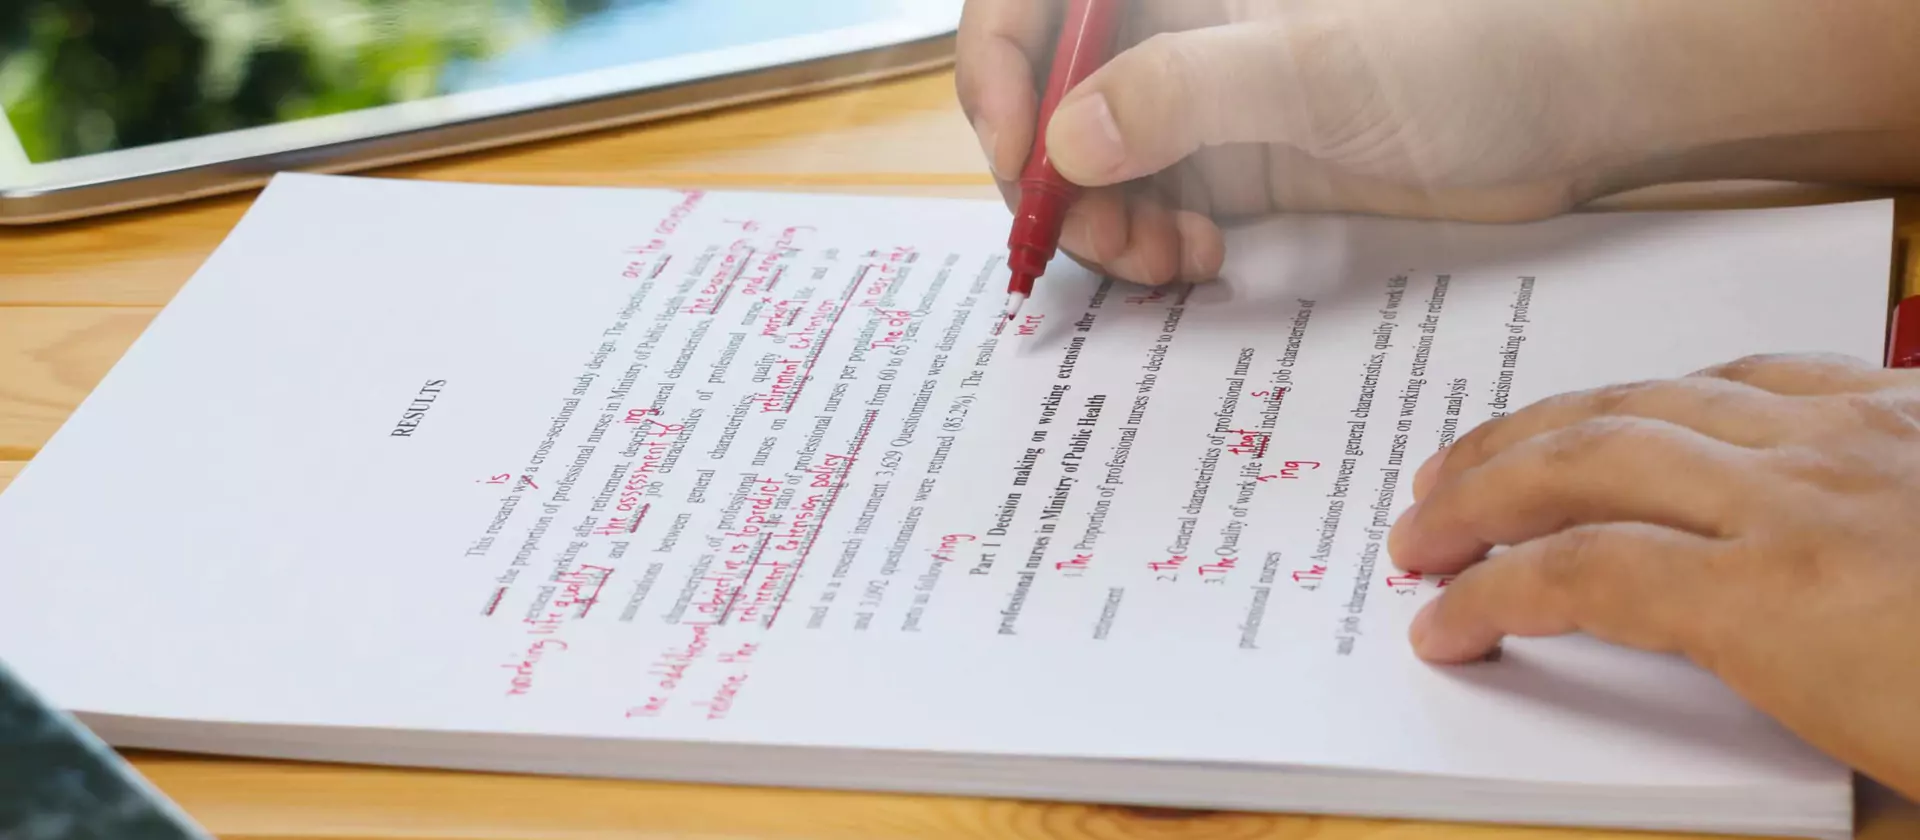 RESULTS
is
This research was a cross-sectional study design. The objectives
are the
the proportion of professional nurses in Ministry of Public Health who decide to
ing
extend working after retirement, describe general characteristics,
the examination of
working life quality
and the assessment
job characteristics of professional nurses
and analyzing
associations between general characteristics, quality of
working
life and job
characteristics of professional nurses on
retirement extension
The additional objective is to predict
the ratio of professional nurses per population
in case of the
release the retirement extension policy
retirement from 60 to 65 years. Questionnaires
The old
used as a research instrument. 3,629 Questionnaires were distributed for questioning
and 3,092 questionnaires were returned (85.2%). The results can
were
parts as follow
ing
Part 1 Decision making on working extension after
professional nurses in Ministry of Public Health
1. The Proportion of professional nurses who decide to extend
the
retirement
2. The General characteristics of professional nurses
3. The Quality of work life
that
including job characteristics of
s
ing
professional nurses
4. The Associations between general characteristics, quality of work life
and job characteristics of professional nurses on working extension after retirement
5. The
analysis
decision making of professional